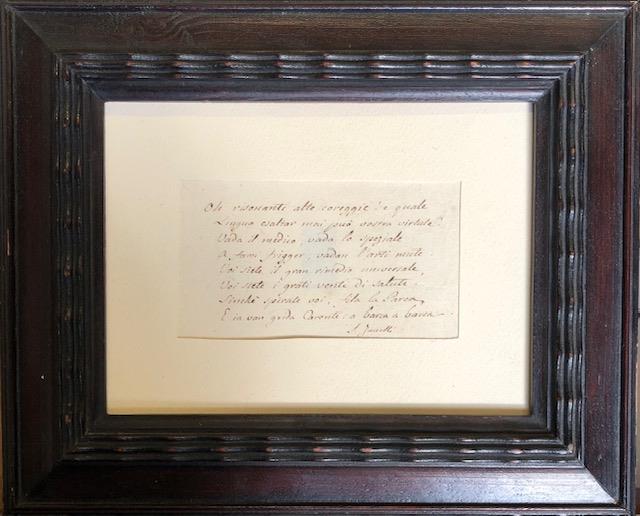 Oh risonanti alte coreggie! e quale
Lingua esaltar mai può vostra virtute?
Vada il medico, vada lo speziale
A farsi frigger, vadan l'arti mute.
Voi siete il gran rimedio universale,
Voi siete i grati vente di salute.
Sinchè spirate voi, fila la Parca,
E in van grida Caronte: a barca a barca.